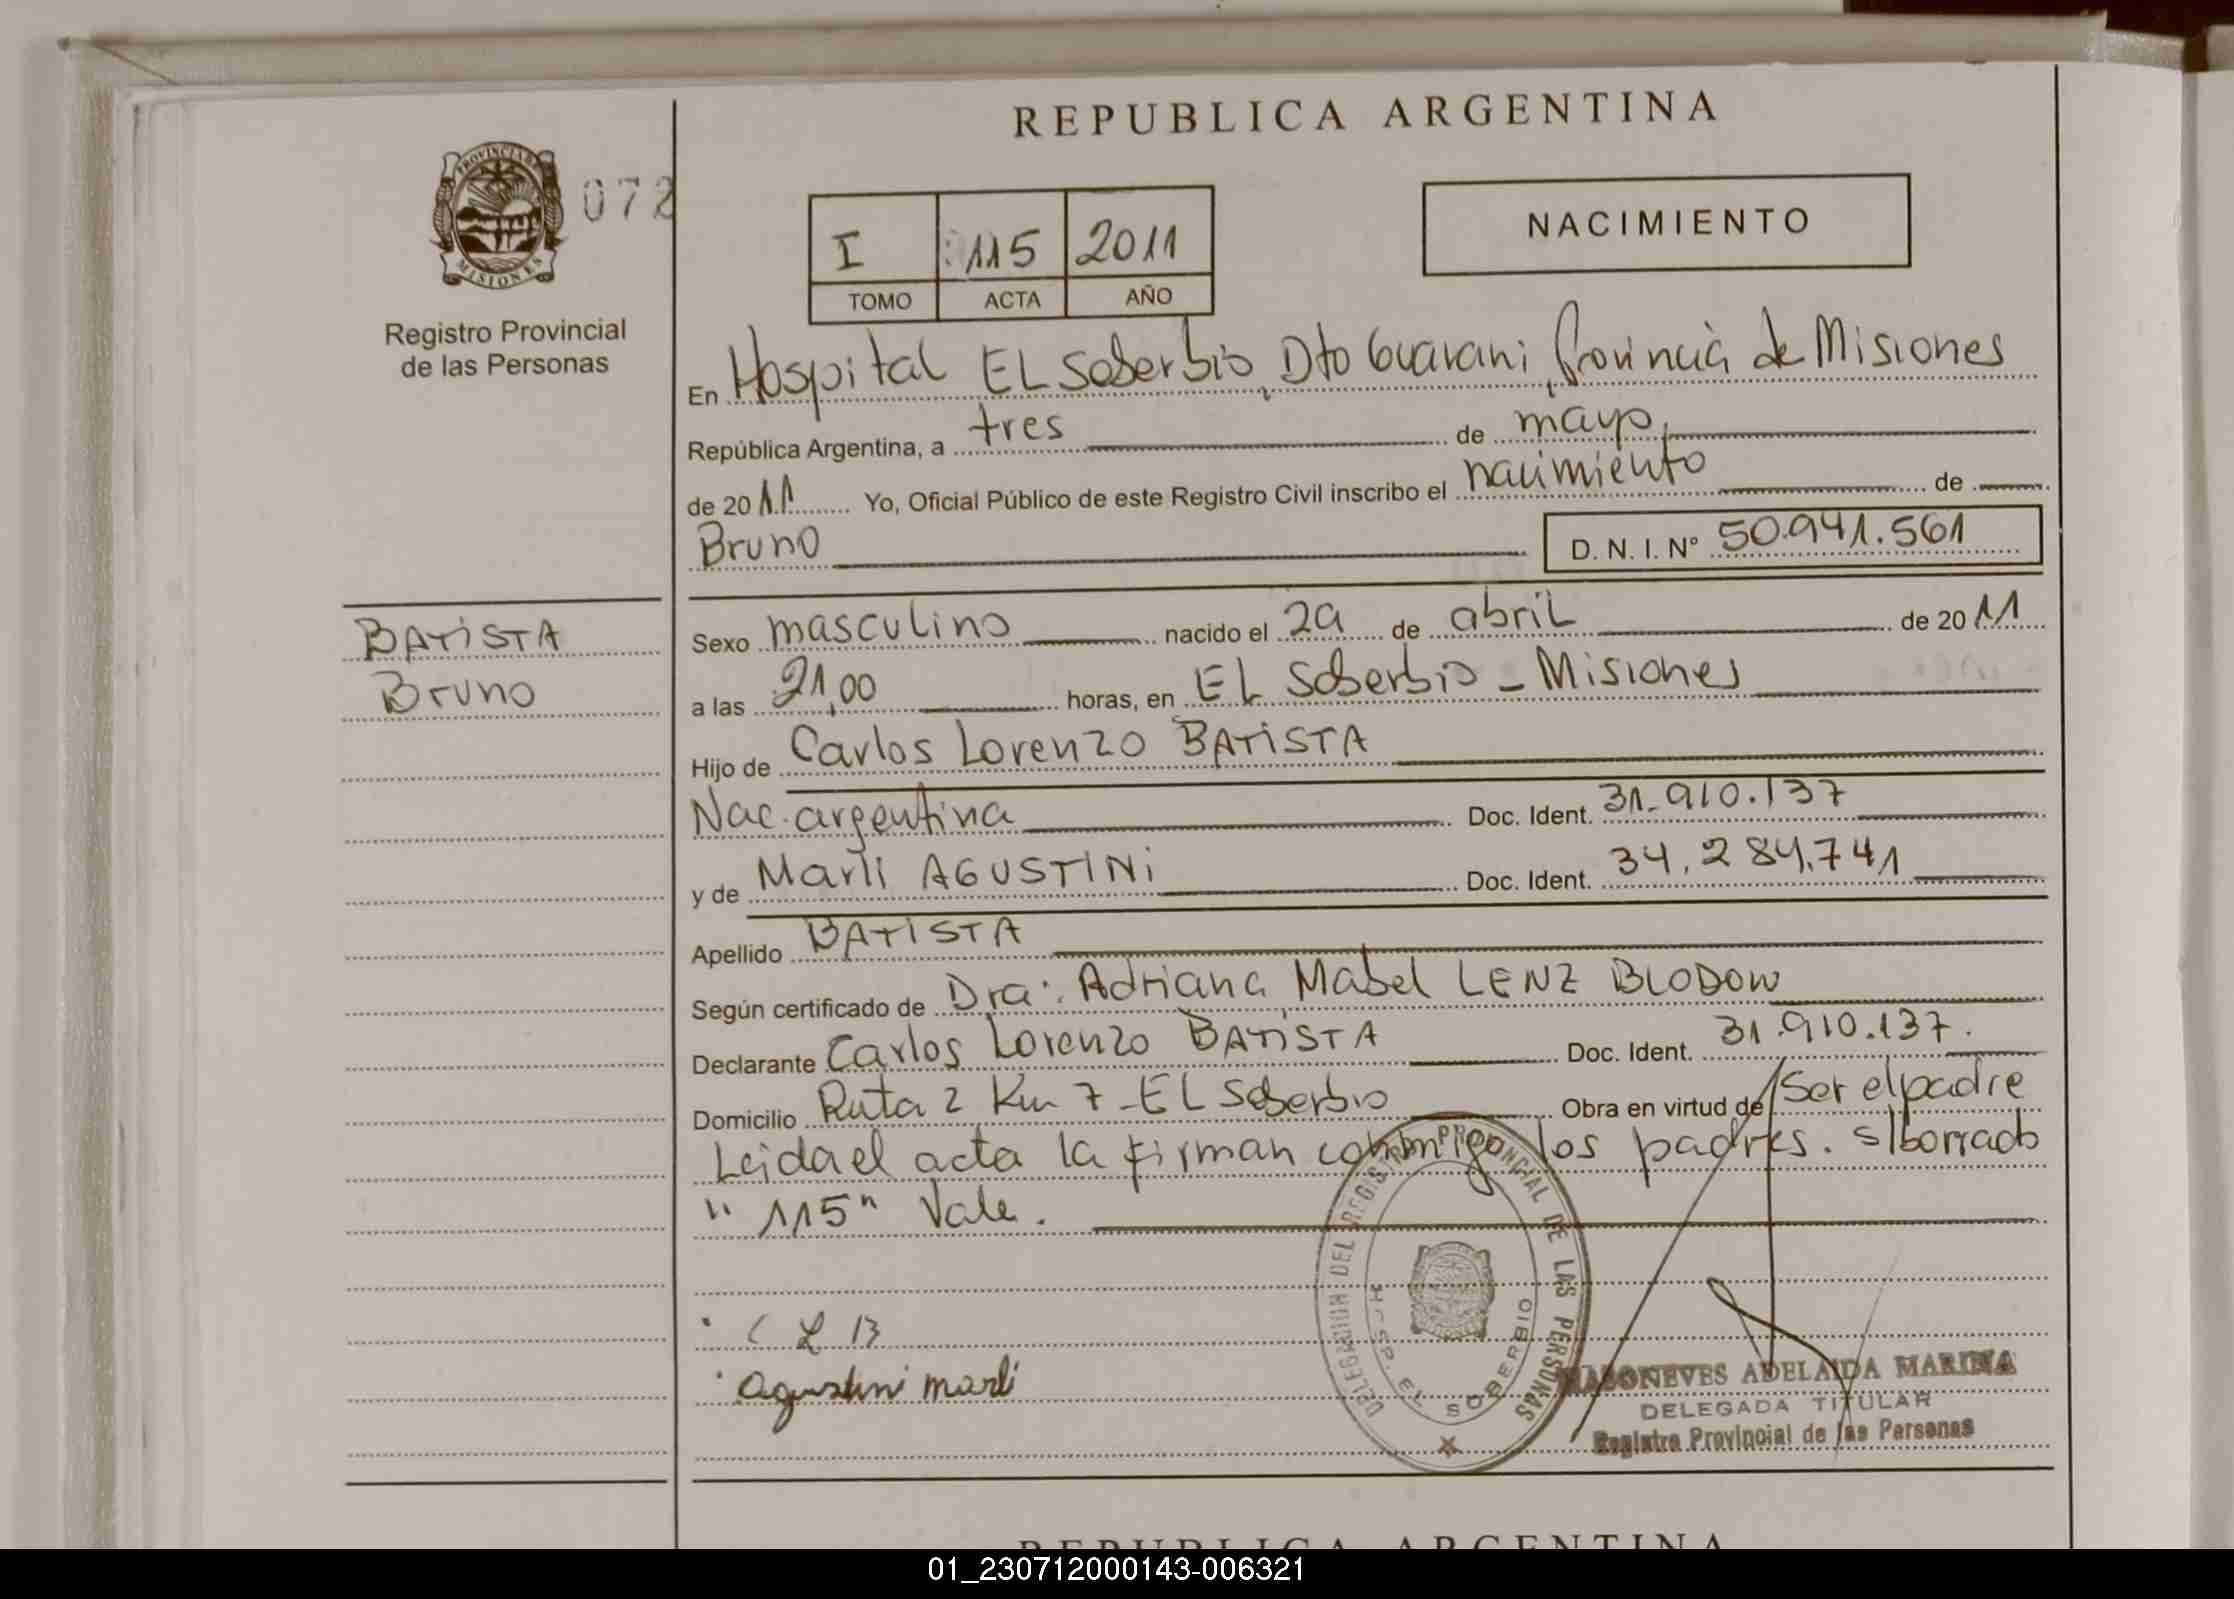 REPUBLICA ARGENTINA
PROVINCIA DE
MISIONES
072
Registro Provincial
de las Personas
I 115 2011
TOMO ACTA AÑO
NACIMIENTO
En Hospital EL Soberbio, Dto Guarani, Provincia de Misiones
República Argentina, a tres de mayo
de 2011 Yo, Oficial Público de este Registro Civil inscribo el nacimiento de
Bruno D. N. I. N° 50.941.561
BATISTA
Bruno
Sexo masculino nacido el 29 de abril de 2011
a las 21,00 horas, en EL Soberbio - Misiones
Hijo de Carlos Lorenzo BATISTA
Nac. argentina Doc. Ident. 31.910.137
y de Marli AGUSTINI Doc. Ident. 34.284.741
Apellido BATISTA
Según certificado de Dra. Adriana Mabel LENZ BLODOW
Declarante Carlos Lorenzo BATISTA Doc. Ident. 31.910.137.
Domicilio Ruta 2 Km 7 - EL Soberbio Obra en virtud de Ser el padre
Leida el acta la firman conmigo los padres. s/borrado
"115" Vale.
C L B
Agustini marli
DELEGACION DEL REGISTRO PROVINCIAL DE LAS PERSONAS
HOSP. EL SOBERBIO
ADELAIDA MARINA
DELEGADA TITULAR
Registro Provincial de las Personas
REPUBLICA ARGENTINA
01_230712000143-006321